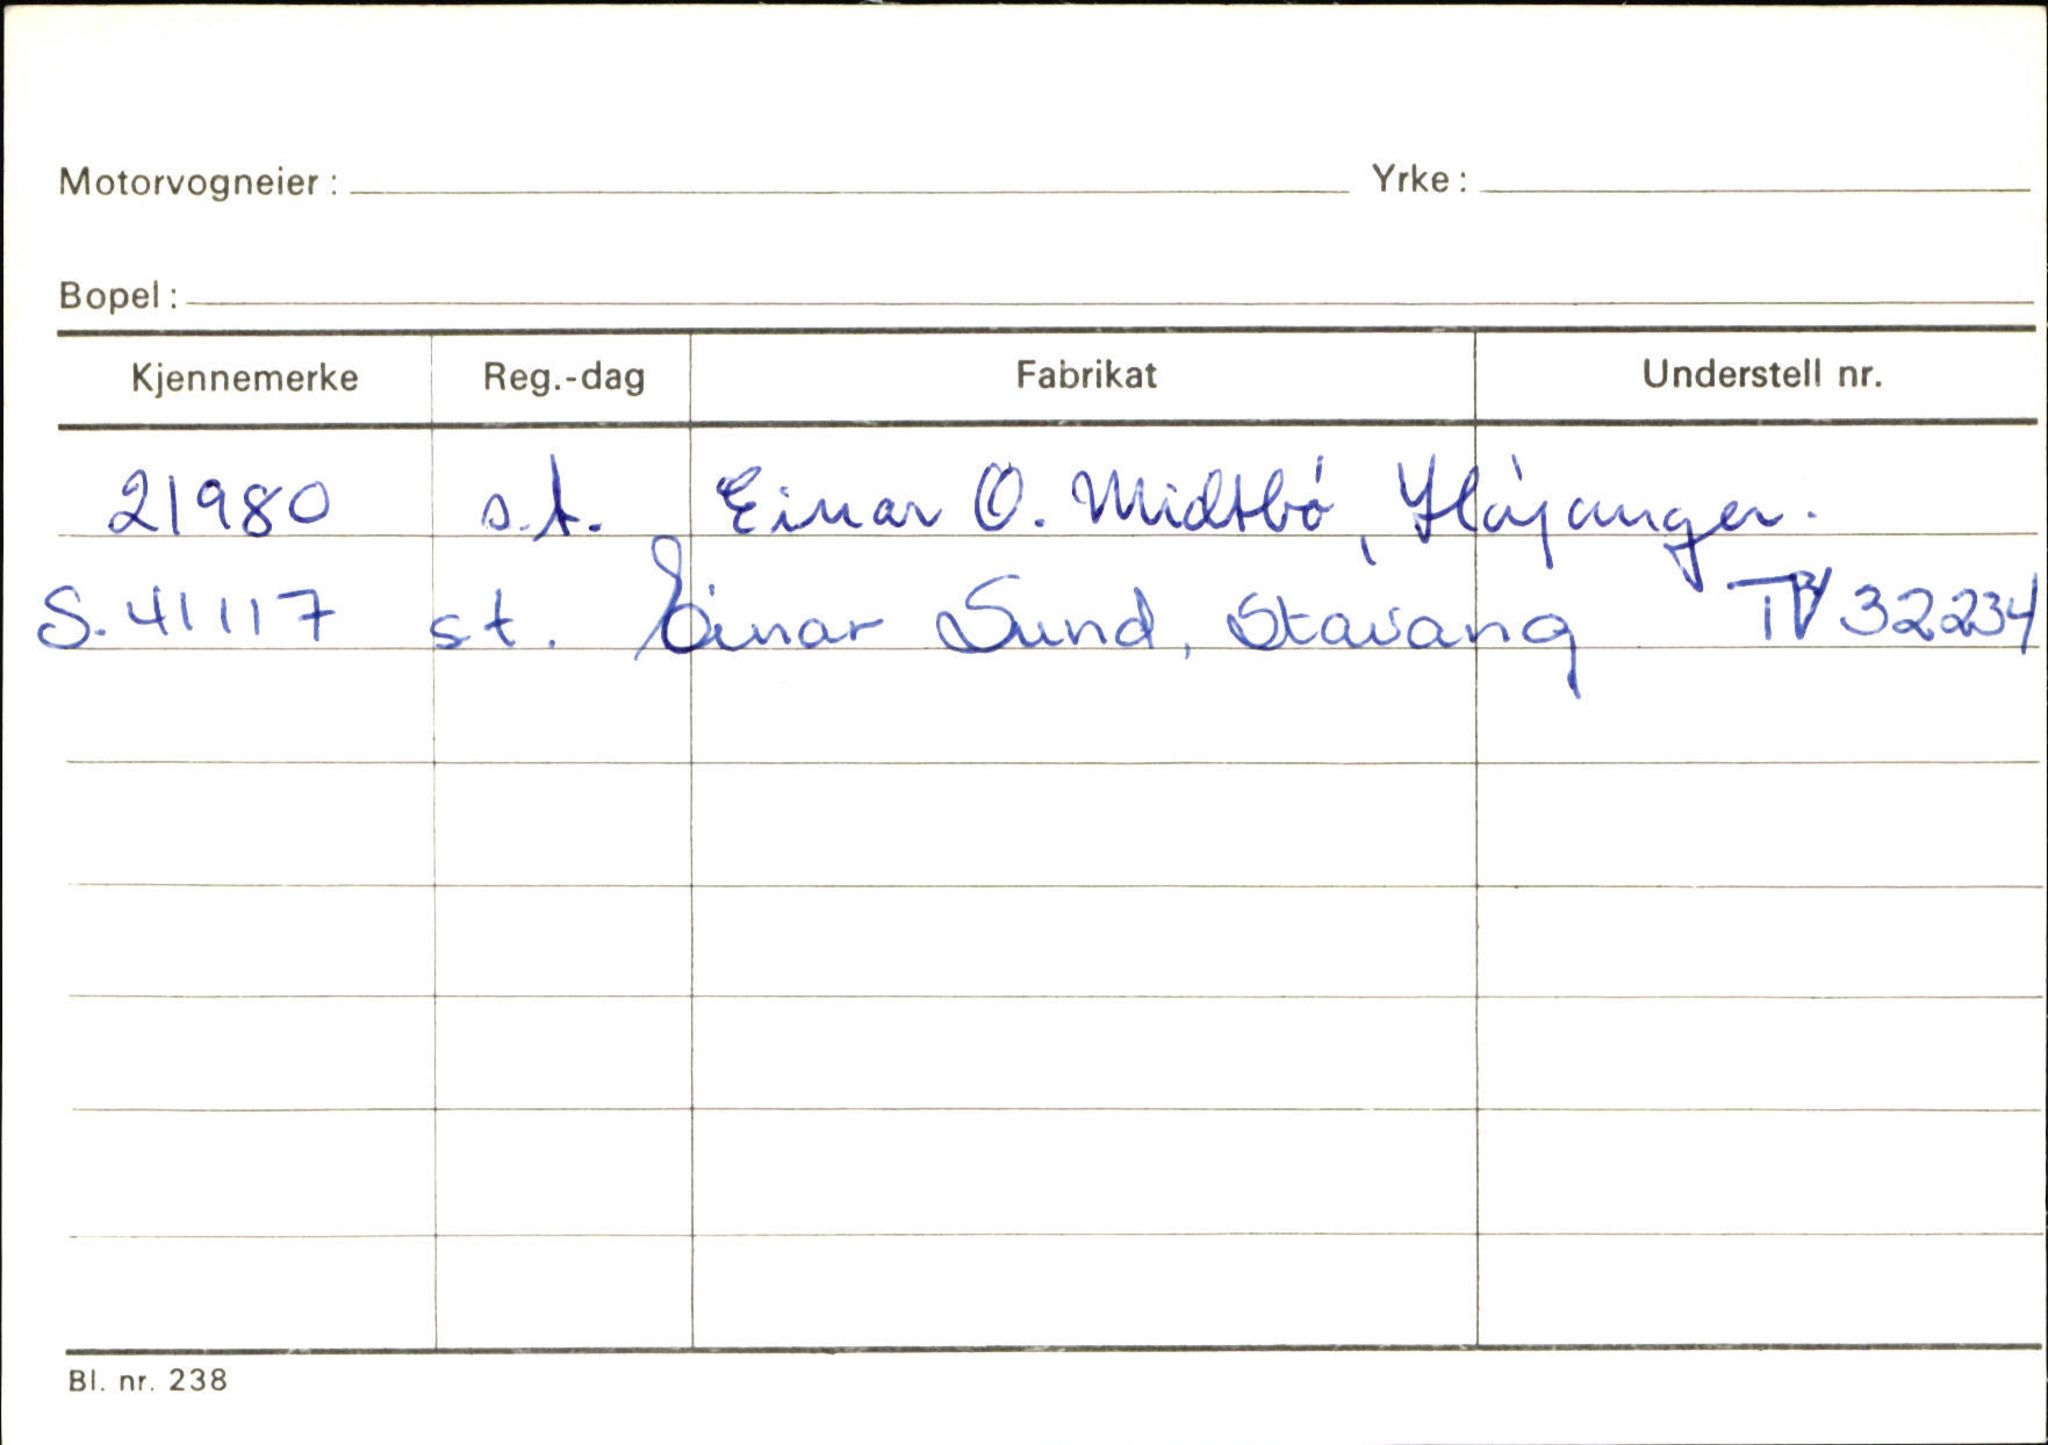 Motorvogneier: Yrke:
Bopel:
Kjennemerke Reg.-dag Fabrikat Understell nr.
21980 s.t. Einar O. Midtbó, Høyanger.
S. 41117 st. Einar Sund, Stavang TV 32234
Bl. nr. 238